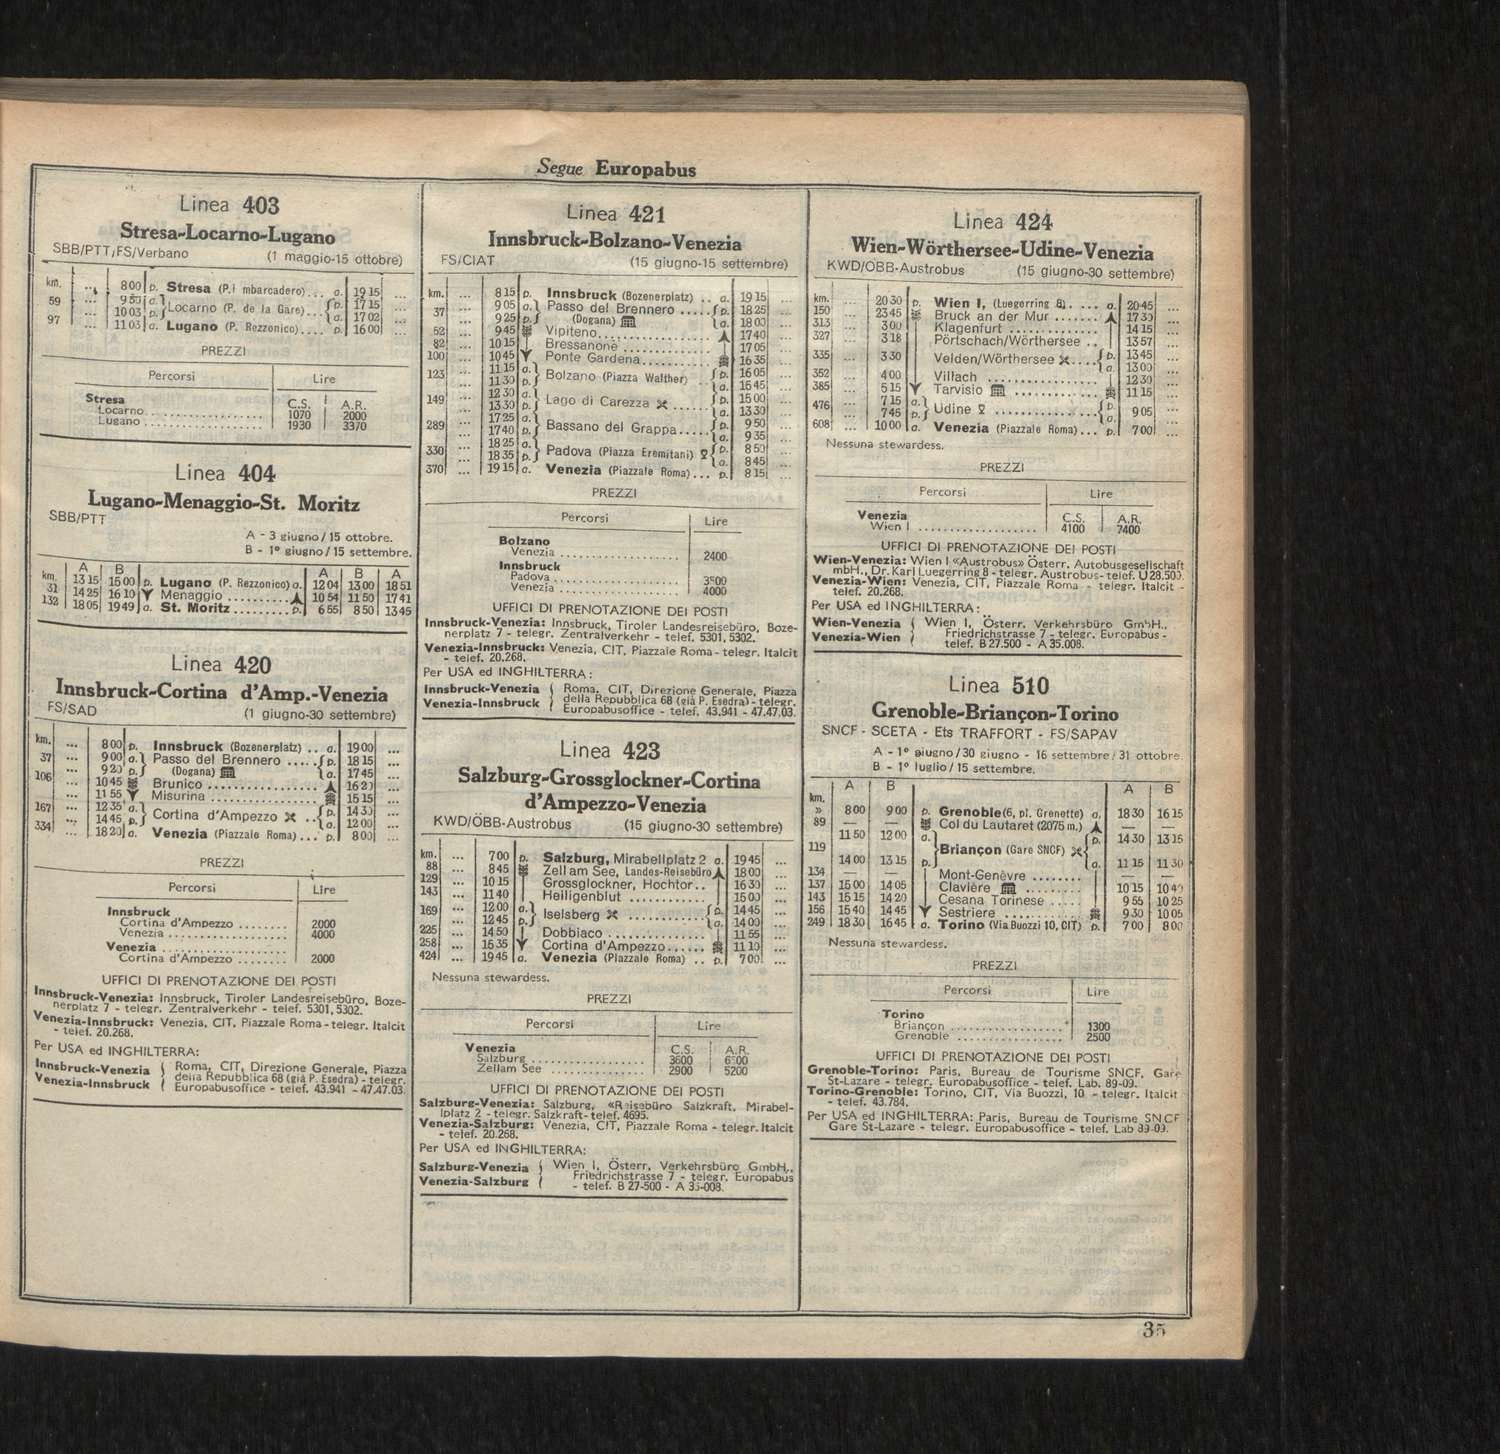 Segue Europabus
Linea 403
Stresa-Locarno-Lugano
SBB/PTT/FS/Verbano (1 maggio-15 ottobre)
km. ... 8 00 p. Stresa (P.i mbarcadero)... a. 19 15 ...
59 ... 9 50 a. Locarno (P. de la Gare)... p. 17 15 ...
... 10 03 p. a. 17 02 ...
97 ... 11 03 a. Lugano (P. Rezzonico).... p. 16 00 ...
PREZZI
Percorsi Lire
Stresa C.S. A.R.
Locarno 1070 2000
Lugano 1930 3370
Linea 404
Lugano-Menaggio-St. Moritz
SBB/PTT
A - 3 giugno/15 ottobre.
B - 1° giugno/15 settembre.
km. A B A B A
13 15 15 00 p. Lugano (P. Rezzonico) a. 12 04 13 00 18 51
31 14 25 16 10 Menaggio 10 54 11 50 17 41
132 18 05 19 49 a. St. Moritz p. 6 55 8 50 13 45
Linea 420
Innsbruck-Cortina d'Amp.-Venezia
FS/SAD (1 giugno-30 settembre)
km. ... 8 00 p. Innsbruck (Bozenerplatz) .. a. 19 00 ...
37 ... 9 00 a. Passo del Brennero ..... p. 18 15 ...
... 9 20 p. (Dogana) a. 17 45 ...
106 ... 10 45 Brunico 16 20 ...
... 11 55 Misurina 15 15 ...
167 ... 12 35 a. Cortina d'Ampezzo p. 14 30 ...
... 14 45 p. a. 12 00 ...
334 ... 18 20 a. Venezia (Piazzale Roma)... p. 8 00 ...
PREZZI
Percorsi Lire
Innsbruck
Cortina d'Ampezzo 2000
Venezia 4000
Venezia
Cortina d'Ampezzo 2000
UFFICI DI PRENOTAZIONE DEI POSTI
Innsbruck-Venezia: Innsbruck, Tiroler Landesreisebüro, Boze-
nerplatz 7 - telegr. Zentralverkehr - telef. 5301, 5302.
Venezia-Innsbruck: Venezia, CIT, Piazzale Roma - telegr. Italcit
- telef. 20.268.
Per USA ed INGHILTERRA:
Innsbruck-Venezia Roma, CIT, Direzione Generale, Piazza
della Repubblica 68 (già P. Esedra) - telegr.
Venezia-Innsbruck Europabusoffice - telef. 43.941 - 47.47.03.
Linea 421
Innsbruck-Bolzano-Venezia
FS/CIAT (15 giugno-15 settembre)
km. ... 8 15 p. Innsbruck (Bozenerplatz) .. a. 19 15 ...
37 ... 9 05 a. Passo del Brennero ..... p. 18 25 ...
... 9 25 p. (Dogana) a. 18 00 ...
52 ... 9 45 Vipiteno 17 40 ...
82 ... 10 15 Bressanone 17 05 ...
100 ... 10 45 Ponte Gardena 16 35 ...
123 ... 11 15 a. Bolzano (Piazza Walther) p. 16 05 ...
... 11 30 p. a. 15 45 ...
149 ... 12 30 a. Lago di Carezza p. 15 00 ...
... 13 30 p. a. 13 30 ...
289 ... 17 25 a. Bassano del Grappa p. 9 50 ...
... 17 40 p. a. 9 35 ...
330 ... 18 25 a. Padova (Piazza Eremitani) p. 8 50 ...
... 18 35 p. a. 8 45 ...
370 ... 19 15 a. Venezia (Piazzale Roma)... p. 8 15 ...
PREZZI
Percorsi Lire
Bolzano
Venezia 2400
Innsbruck
Padova 3500
Venezia 4000
UFFICI DI PRENOTAZIONE DEI POSTI
Innsbruck-Venezia: Innsbruck, Tiroler Landesreisebüro, Boze-
nerplatz 7 - telegr. Zentralverkehr - telef. 5301, 5302.
Venezia-Innsbruck: Venezia, CIT, Piazzale Roma - telegr. Italcit
- telef. 20.268.
Per USA ed INGHILTERRA:
Innsbruck-Venezia Roma, CIT, Direzione Generale, Piazza
della Repubblica 68 (già P. Esedra) - telegr.
Venezia-Innsbruck Europabusoffice - telef. 43.941 - 47.47.03.
Linea 423
Salzburg-Grossglockner-Cortina
d'Ampezzo-Venezia
KWD/ÖBB-Austrobus (15 giugno-30 settembre)
km. ... 7 00 p. Salzburg, Mirabellplatz 2 a. 19 45 ...
88 ... 8 45 Zell am See, Landes-Reisebüro 18 00 ...
129 ... 10 15 Grossglockner, Hochtor.. 16 30 ...
143 ... 11 40 Heiligenblut 15 00 ...
169 ... 12 00 a. Iselsberg p. 14 45 ...
... 12 45 p. a. 14 00 ...
225 ... 14 50 Dobbiaco 11 55 ...
258 ... 16 35 Cortina d'Ampezzo 11 10 ...
424 ... 19 45 a. Venezia (Piazzale Roma) .. p. 7 00 ...
Nessuna stewardess.
PREZZI
Percorsi Lire
Venezia C.S. A.R.
Salzburg 3600 6500
Zell am See 2900 5200
UFFICI DI PRENOTAZIONE DEI POSTI
Salzburg-Venezia: Salzburg, «Reisebüro Salzkraft, Mirabel-
lplatz 2 - telegr. Salzkraft - telef. 4695.
Venezia-Salzburg: Venezia, CIT, Piazzale Roma - telegr. Italcit
- telef. 20.268.
Per USA ed INGHILTERRA:
Salzburg-Venezia Wien I, Österr. Verkehrsbüro GmbH.,
Friedrichstrasse 7 - telegr. Europabus
Venezia-Salzburg - telef. B 27-500 - A 35-008.
Linea 424
Wien-Wörthersee-Udine-Venezia
KWD/ÖBB-Austrobus (15 giugno-30 settembre)
km. ... 20 30 p. Wien I, (Luegerring 8). a. 20 45 ...
150 ... 23 45 Bruck an der Mur 17 30 ...
313 ... 3 00 Klagenfurt 14 15 ...
327 ... 3 18 Pörtschach/Wörthersee .. 13 57 ...
335 ... 3 30 Velden/Wörthersee p. 13 45 ...
a. 13 00 ...
352 ... 4 00 Villach 12 30 ...
385 ... 5 15 Tarvisio 11 15 ...
476 ... 7 15 a. Udine p. 9 05 ...
... 7 45 p. a.
608 ... 10 00 a. Venezia (Piazzale Roma)... p. 7 00 ...
Nessuna stewardess.
PREZZI
Percorsi Lire
Venezia C.S. A.R.
Wien I 4100 7400
UFFICI DI PRENOTAZIONE DEI POSTI
Wien-Venezia: Wien I «Austrobus» Österr. Autobusgesellschaft
mbH., Dr. Karl Luegerring 8 - telegr. Austrobus - telef. U 28.500.
Venezia-Wien: Venezia, CIT, Piazzale Roma - telegr. Italcit -
telef. 20.268.
Per USA ed INGHILTERRA:
Wien-Venezia Wien I, Österr. Verkehrsbüro GmbH.,
Friedrichstrasse 7 - telegr. Europabus -
Venezia-Wien telef. B 27.500 - A 35.008.
Linea 510
Grenoble-Briançon-Torino
SNCF - SCETA - Ets TRAFFORT - FS/SAPAV
A - 1° giugno/30 giugno - 16 settembre/31 ottobre.
B - 1° luglio/15 settembre.
km. A B A B
» 8 00 9 00 p. Grenoble (6, pl. Grenette) a. 18 30 16 15
89 — — Col du Lautaret (2075 m.) — —
11 50 12 00 a. p. 14 30 13 15
119 Briançon (Gare SNCF)
14 00 13 15 p. a. 11 15 11 30
134 — — Mont-Genèvre — —
137 15 00 14 05 Clavière 10 15 10 40
143 15 15 14 20 Cesana Torinese 9 55 10 25
156 15 40 14 45 Sestriere 9 30 10 05
249 18 30 16 45 a. Torino (Via Buozzi 10, CIT) p. 7 00 8 00
Nessuna stewardess.
PREZZI
Percorsi Lire
Torino
Briançon 1300
Grenoble 2500
UFFICI DI PRENOTAZIONE DEI POSTI
Grenoble-Torino: Paris, Bureau de Tourisme SNCF, Gare
St-Lazare - telegr. Europabusoffice - telef. Lab. 89-09.
Torino-Grenoble: Torino, CIT, Via Buozzi, 10 - telegr. Italcit
- telef. 43.784.
Per USA ed INGHILTERRA: Paris, Bureau de Tourisme SNCF
Gare St-Lazare - telegr. Europabusoffice - telef. Lab 89-09.
35